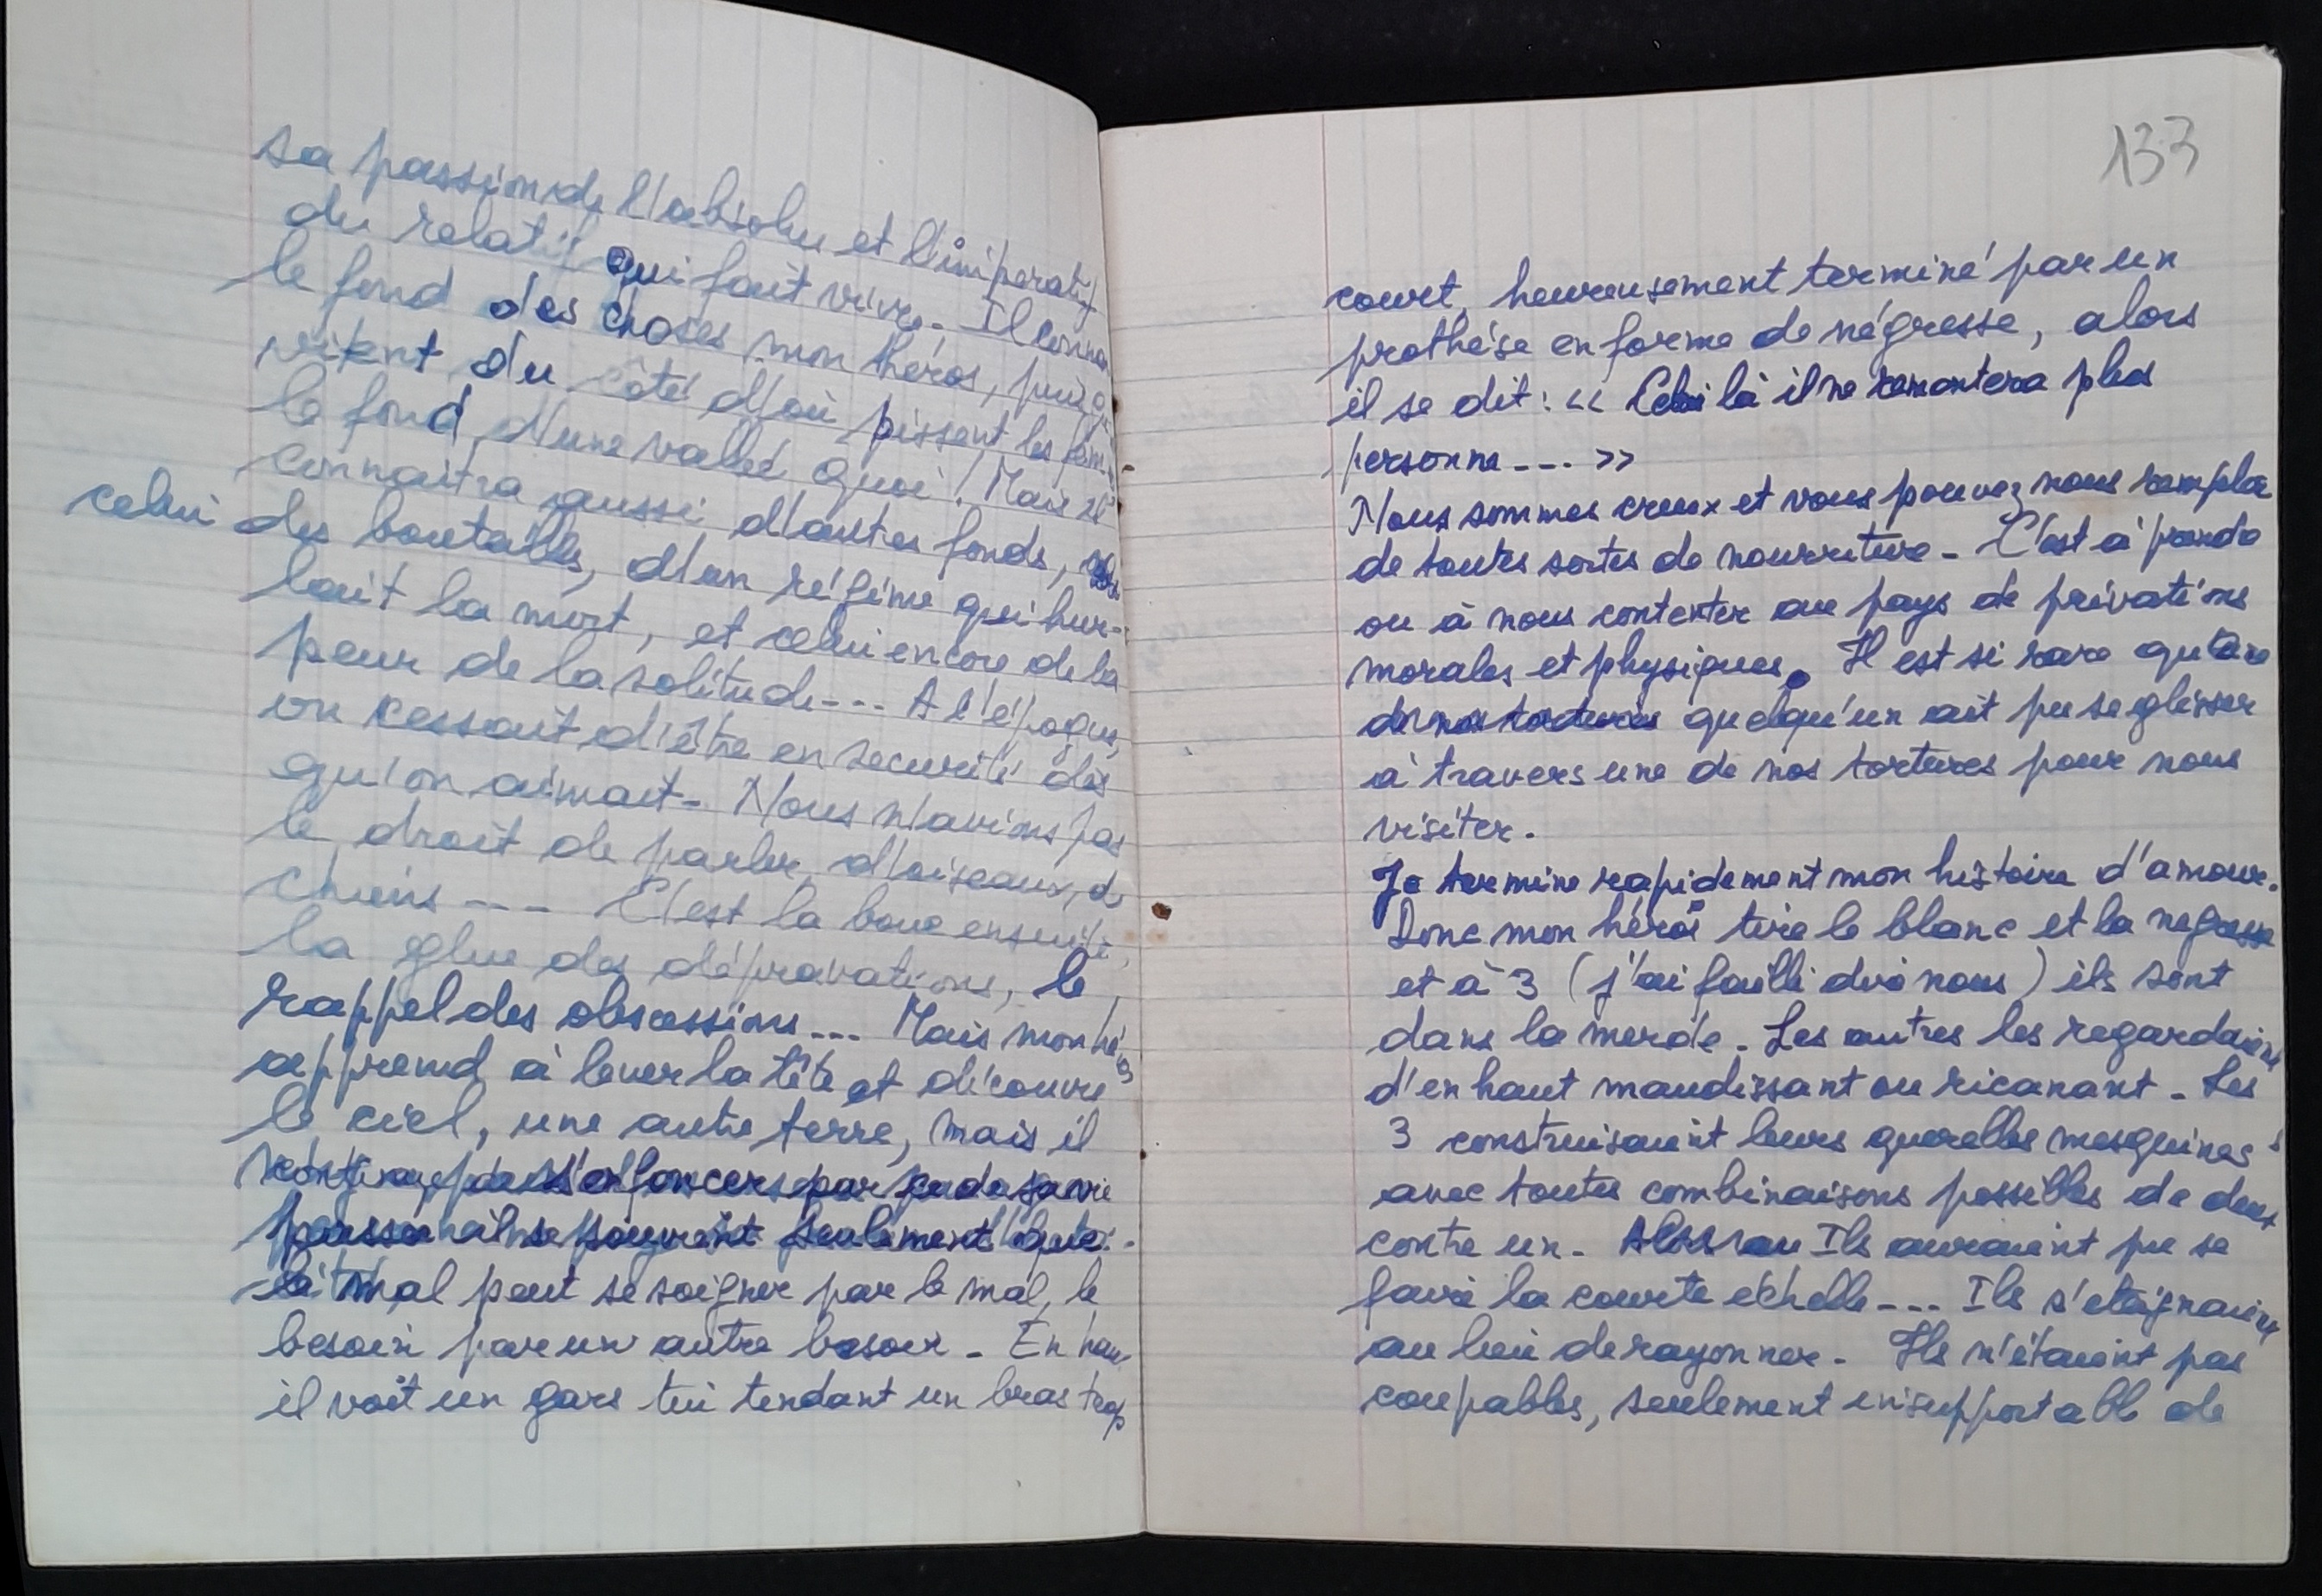 sa passion de l'absolu et l'impératif
du relatif qui fait vivre. Il connai
le fond des choses mon héros, puisq
vient du côté d'où pissent les fem
le fond d'une vallée quoi! Mais il
connaitra aussi d'autres fonds,
celui des boutables, d'un régime qui hur-
lait la mort, et celui encore de la
peur de la solitude--- A l'époque,
on cessait d'être en securité dès
qu'on aimait- Nous n'avions pas
le droit de parler d'oiseaux, de
chiens --- C'est la boue ensuite,
la glue des dépravations, le
rappel des obsessions... Mais mon héros
apprend à lever la tête et découvre
le ciel, une autre terre, mais il
s'enfoncer par
seulement que
le mal peut se soigner par le mal, le
besoin par un autre besoin - En hau
il voit un gars lui tendant un bras trop
133
court, heureusement terminé par un
prothèse en forme de négresse, alors
il se dit: << Celui là il ne remontera plus
personne --- >>
Nous sommes creux et vous pouvez nous remplir
de toutes sortes de nourriture - C'est à prendre
ou à nous contenter au pays de privations
morales et physiques. Il est si rare
quelqu'un ait pu se glisser
à travers une de nos tortures pour nous
visiter.
Je termine rapidement mon histoire d'amour.
Donc mon héros tire le blanc et la negresse
et à 3 (j'ai failli dire nous) ils sont
dans la merde. Les autres les regardaient
d'en haut maudissant ou ricanant - Les
3 construisaient leurs querelles mesquines
avec toutes combinaisons possibles de deux
contre un. Ils auraient pu se
faire la courte échelle --- Ils s'eteignaient
au lieu de rayonner. Ils n'étaient pas
coupables, seulement insupportable de